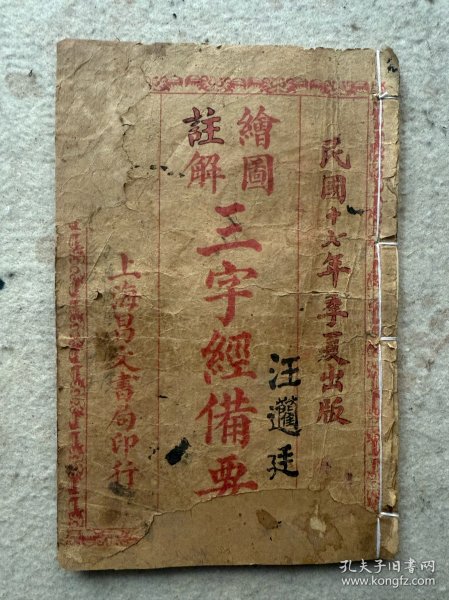 民國十六年季夏出版
繪圖
註解
三字經備要
汪廷
上海昌文書局印行
孔夫子旧书网
www.kongfz.com